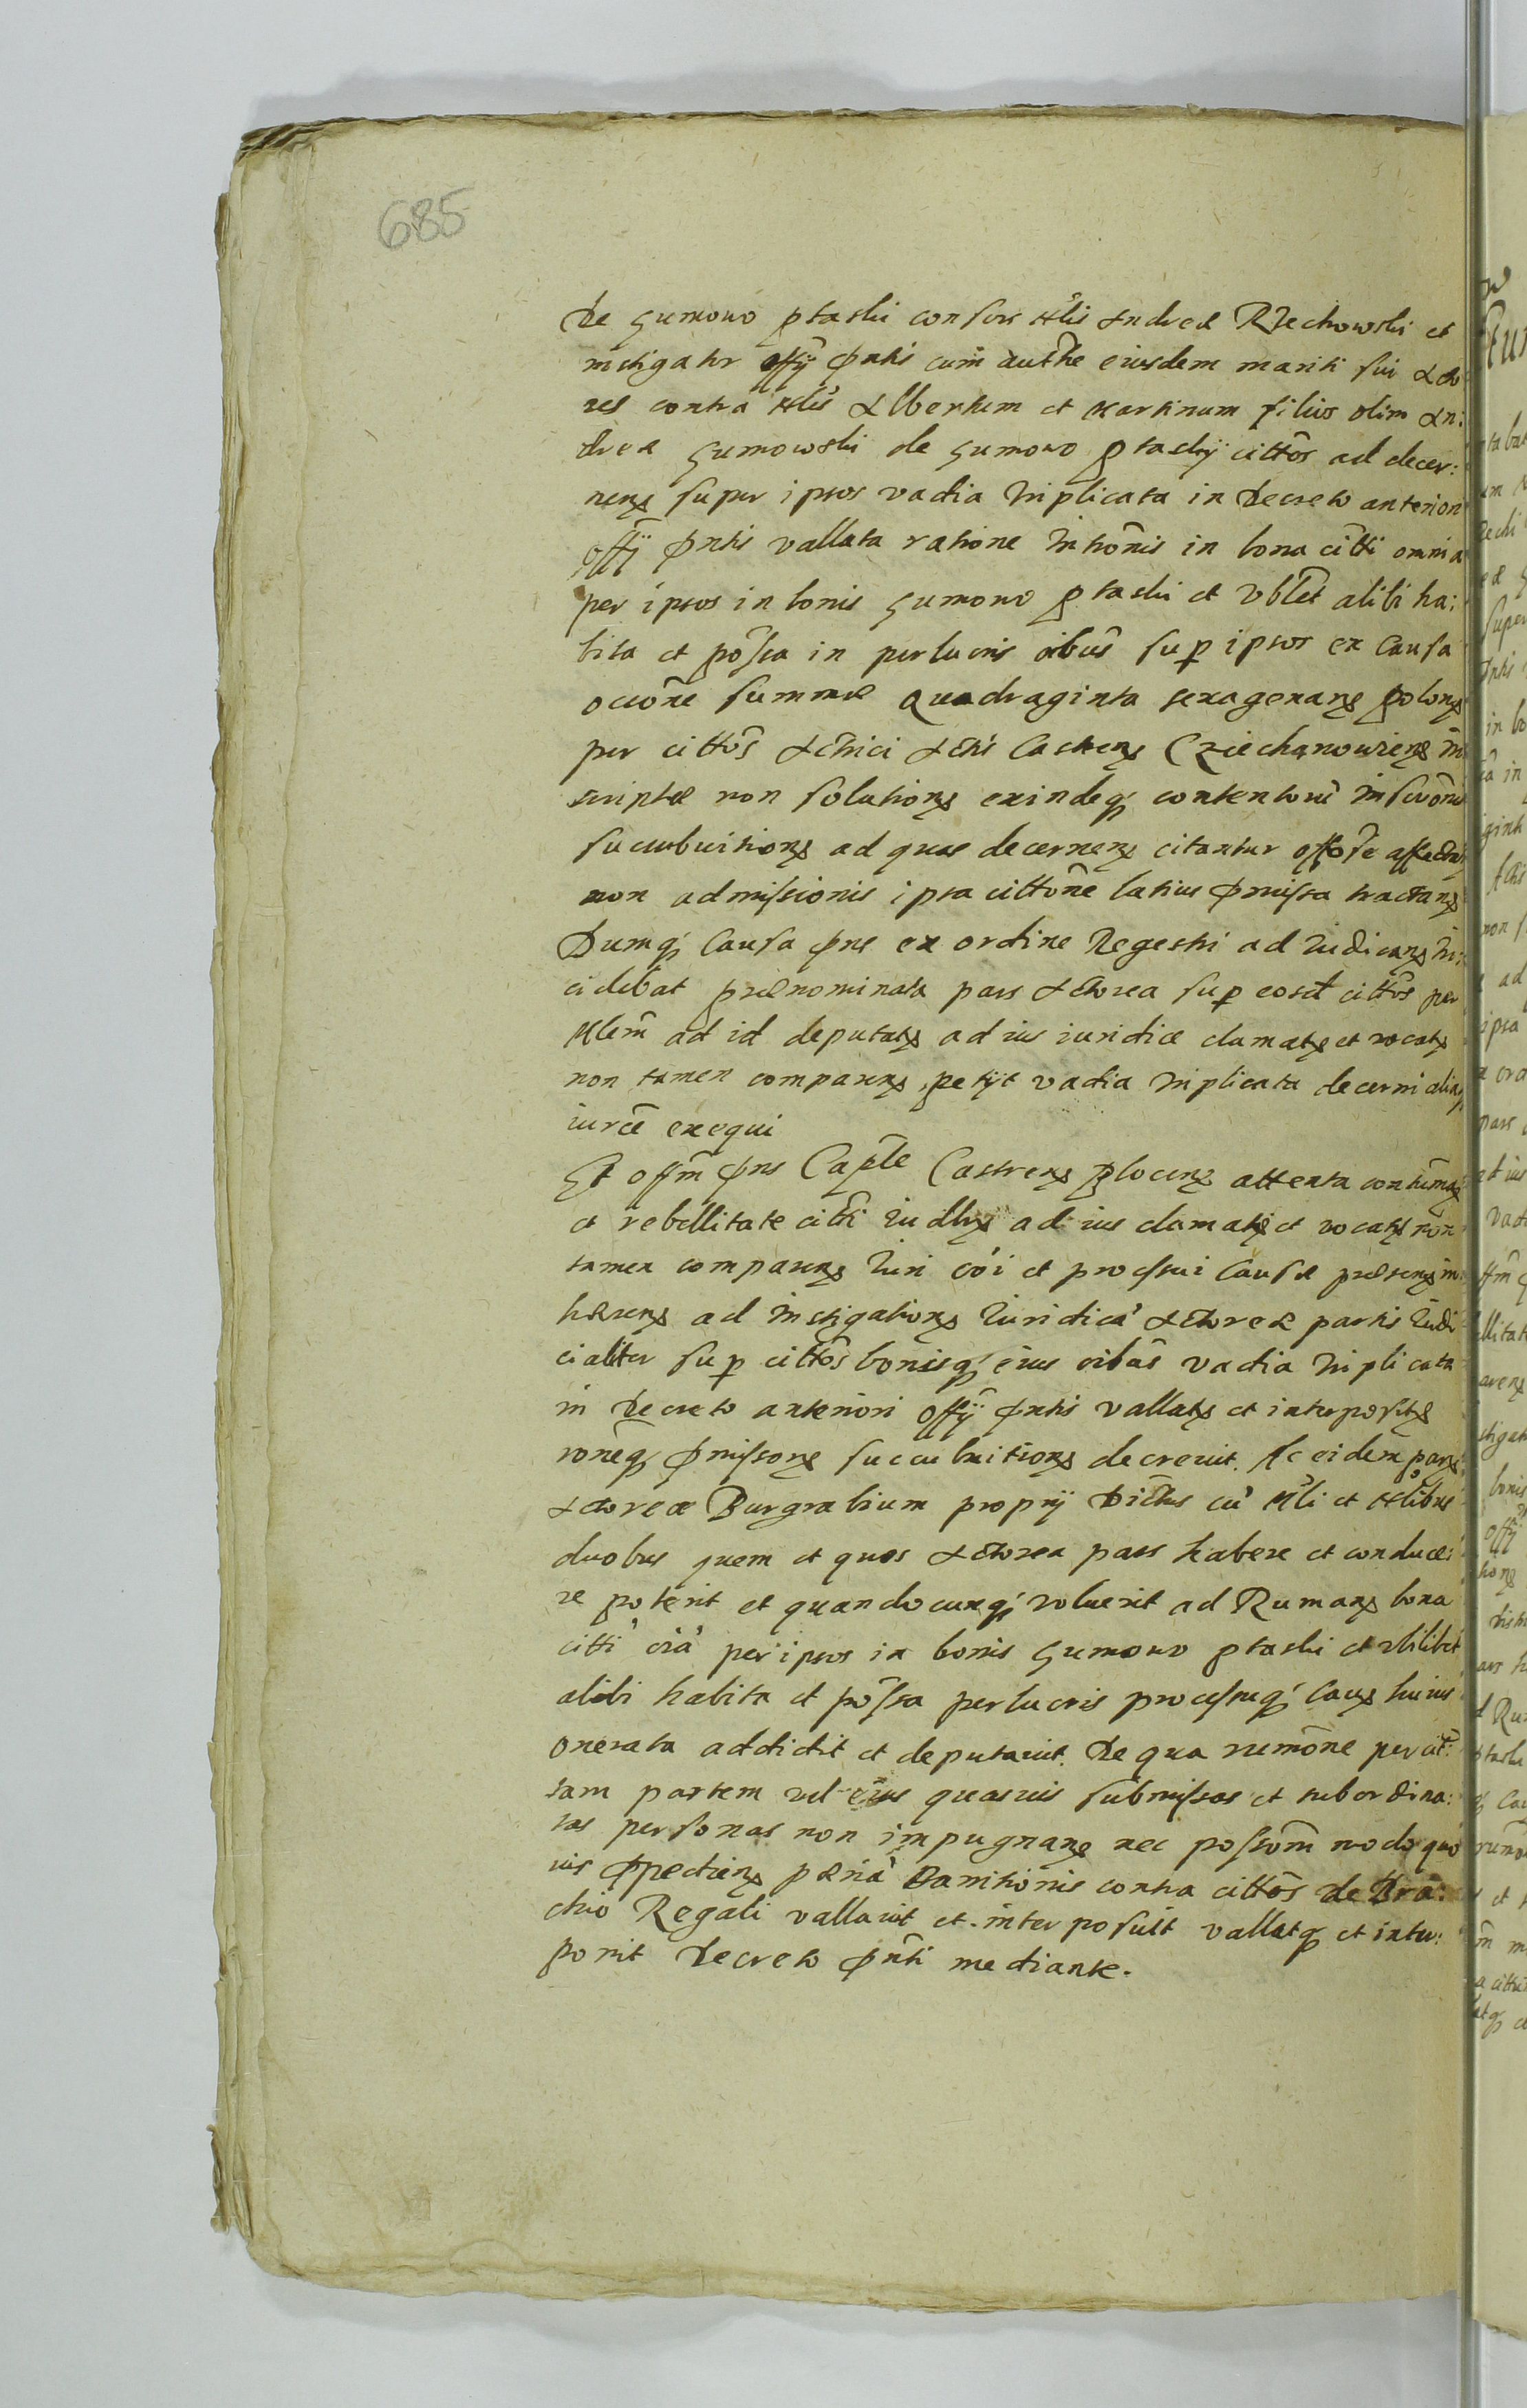 685
de Gumowo ptaski consors Nlis Andreæ Rzechowski et
instigator offÿ pntis cum authte eiusdem mariti sui Acto
res contra Nles Albertum et Martinum filios olim An:
dreæ Gumowski de Gumowo ptaskÿ cittos ad decer:
nen super ipsos vadia triplicata in decreto anteriori
offÿ pntis vallata ratione intronis in bona citti omnia
per ipsos in bonis Gumowo ptaski et vblt alibi ha:
bita et possa in perlucris oibus sup ipsos ex causa
occone summæ quadraginta sexagenar polon
per cittos Actrici Actis Castren Cziechanowien in
scriptæ non solution exindeq contentoru inscron
succubuition ad quæ decernen citantur
non admissionis ipsa cittone latius pmissa tractan
Dumq causa pns ex ordine Regestri ad iudican in:
cidebat prænominata pars Actorea sup eosd cittos per
Nlem ad id deputat ad ius iuridice clamat et vocat
non tamen comparen petÿt vadia triplicata decerni alias
iurce exequi
Et offm pns Caple Castren plocen attenta contuma
et rebellitate citti iudlr ad ius clamat et vocat non
tamen comparen iuri coi et processui causæ præsen in
hæren ad instigation iuridica Actoreæ partis iudi
cialiter sup cittos bonisq eius oibus vadia triplicata
in decreto anteriori offÿ pntis vallat et interposit
roneq pmissor succubuition decrevit. Ac eidem par
Actoreæ Burgrabium proprÿ cu Nli et Nlibus
duobus quem et quos Actorea pars habere et conduce:
re poterit et quandocunq voluerit ad Ruman bona
citti oia per ipsos in bonis Gumowo ptaski et vbilibet
alibi habita et possa perlucris processuq caus huius
onerata addidit et deputavit. De qua rumone per cit:
tam partem vel eius quasvis submissas et subordina:
tas personas non impugnan nec possom modo quo
vis ppedien pæna bannitionis contra cittos de Bra:
chio Regali vallavit et interposuit vallatq et inter:
ponit decreto pnti mediante.